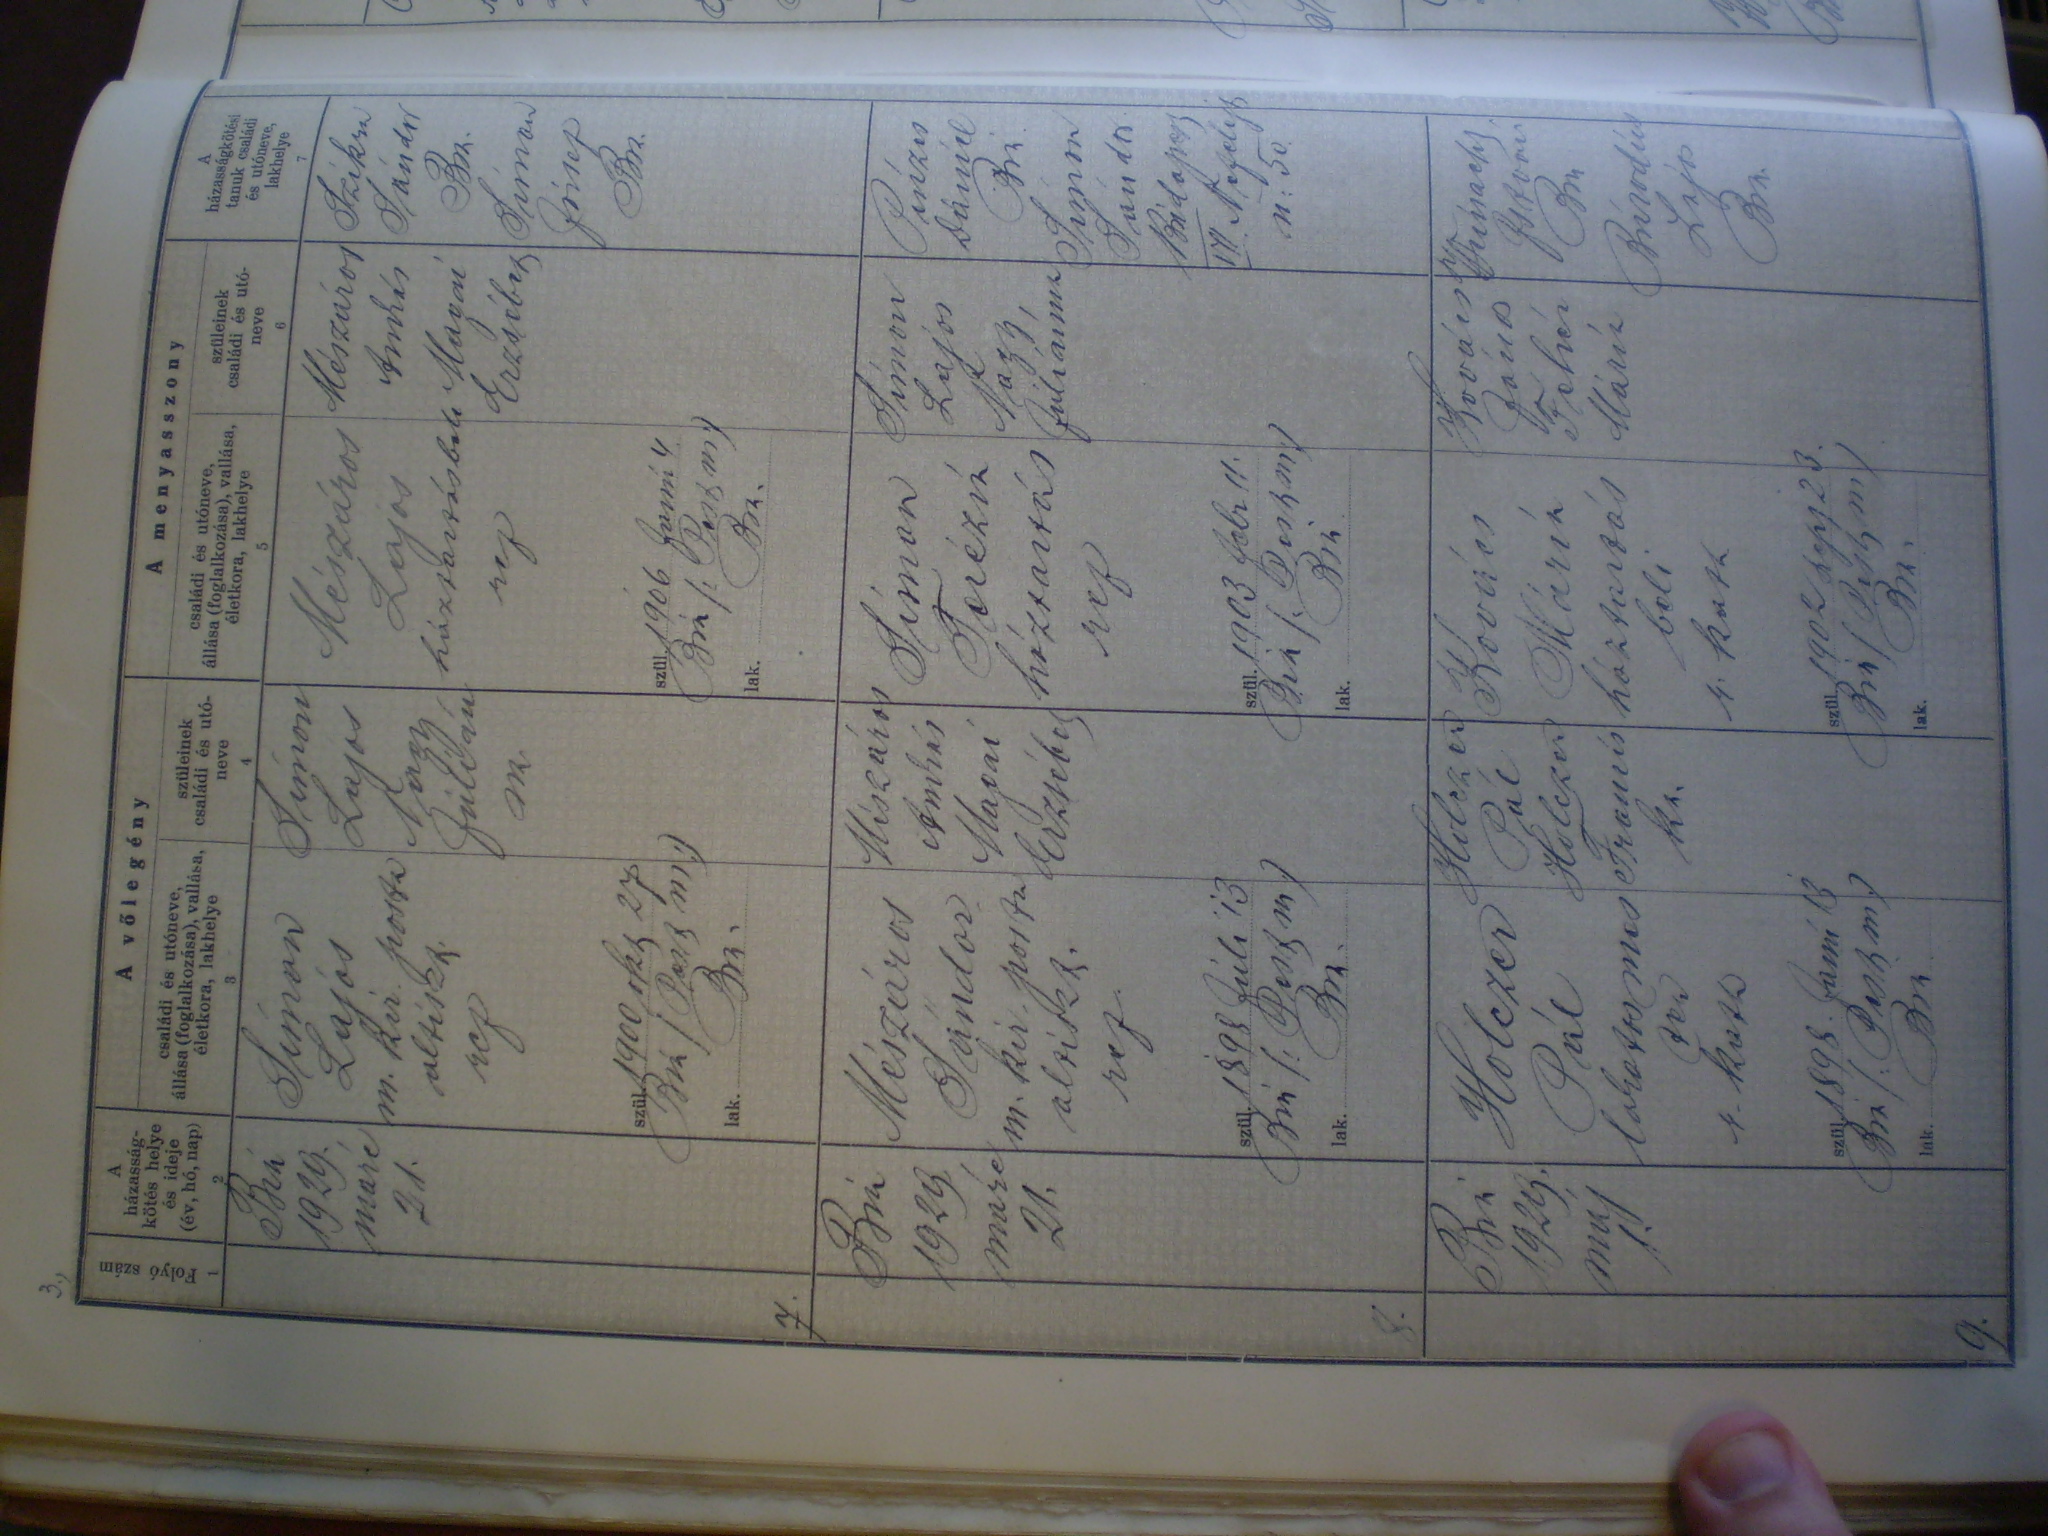 3.,
A võlegény
A menyasszony
Folyó szám
1
A
házasság-
kötés helye
és ideje
(év, hó, nap)
2
családi és utóneve,
állása (foglalkozása), vallása,
életkora, lakhelye
3
szüleinek
családi és utó-
neve
4
családi és utóneve,
állása (foglalkozása), vallása,
életkora, lakhelye
5
szüleinek
családi és utó-
neve
6
A
házasságkötési
tanuk családi
és utóneve,
lakhelye
7
7.
Bia
1929.
márc
21.
Simon
Lajos
m. kir. posta
altiszt.
ref
szül. 1900 okt 27
Bia (: Pest m.)
lak. Bia.
Simon
Lajos
Nagy
Julián
na
Mészáros
Lajos
háztartásbeli
ref
szül. 1906 juni 4
Bia (: Pest m.)
lak. Bia.
Mészáros
András
Erzsébet
Szikra
Sándor
Bia.
Simon
József
Bia.
8.
Bia
1929
márc
21.
Mészáros
Sándor
m. kir. posta
altiszt.
ref.
szül. 1898 juli 13
Bia (: Pest m.)
lak. Bia.
Mészáros
András
Erzsébet
Simon
Terézia
háztartás
ref
szül. 1903 febr 11.
Bia (: Pest m.)
lak. Bia.
Simon
Lajos
Nagy
Juliánna
Dániel
Bia
Simon
Sándor.
Budapest
VII.
n: 50.
9.
Bia
1929.
máj
Holczer
Pál
r. kath
szül. 1898. juni 13
Bia (: Pest m.)
lak. Bia.
Holczer
Pál
Holczer
Francis
ka.
Kovács
Mária
háztartás
beli
r. kath
szül. 1902 sept 23.
Bia (: Pest m.)
lak. Bia.
Kovács
János
Mária
István
Bia
Lajos
Bia.